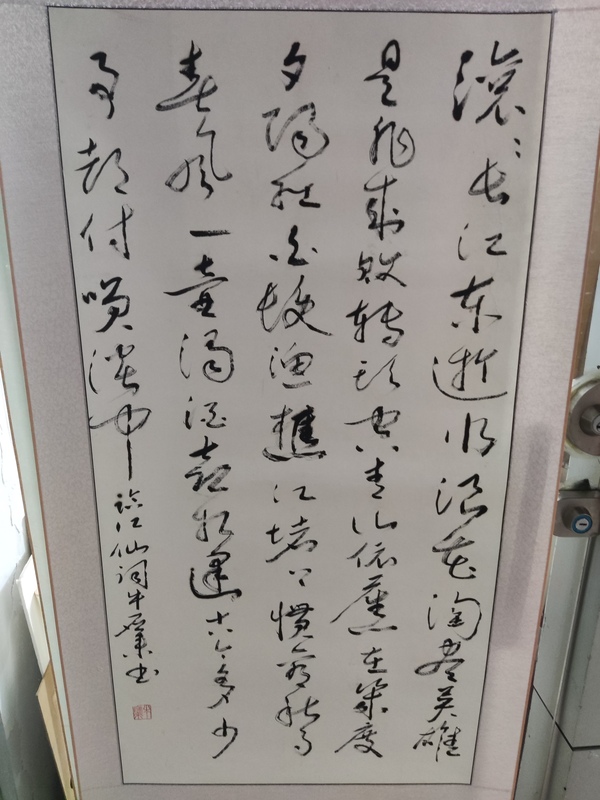 滚滚长江东逝水浪花淘尽英雄
是非成败转头空青山依旧在几度
夕阳红白发渔樵江渚上惯看秋月
春风一壶浊酒喜相逢古今多少
事都付笑谈中
临江仙词牛书